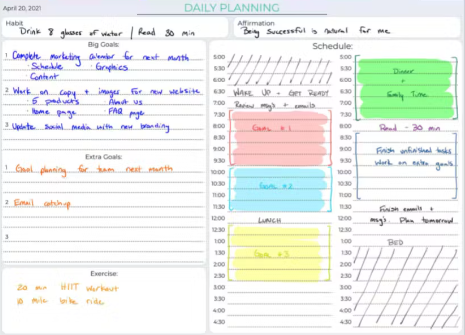 April 20, 2021
DAILY PLANNING
Habit
Drink 8 glasses of water / Read 30 min
Affirmation
Being successful is natural for me
Big Goals:
1 Complete marketing calendar for next month
· Schedule · Graphics
· Content
2 Work on copy + images for new website
· 5 products · About us
· Home page · FAQ page
3 Update social media with new branding
Extra Goals:
1 Goal planning for team next month
2 Email catch-up
3
Exercise:
20 min HIIT workout
10 min bike ride
Schedule:
5:00
5:30
6:00
6:30 WAKE UP - GET READY
7:00 Review msg's + emails
7:30
8:00 GOAL #1
8:30
9:00
9:30
10:00
10:30 GOAL #2
11:00
11:30
12:00 LUNCH
12:30
1:00
1:30 GOAL #3
2:00
2:30
3:00
3:30
4:00
4:30
5:00
5:30 Dinner
6:00 +
6:30 Family Time
7:00
7:30
8:00 Read - 30 min
8:30
9:00 Finish unfinished tasks
9:30 Work on extra goals
10:00
10:30
11:00
11:30 Finish emails +
12:00 msg's. Plan tomorrow
12:30
1:00 BED
1:30
2:00
2:30
3:00
3:30
4:00
4:30